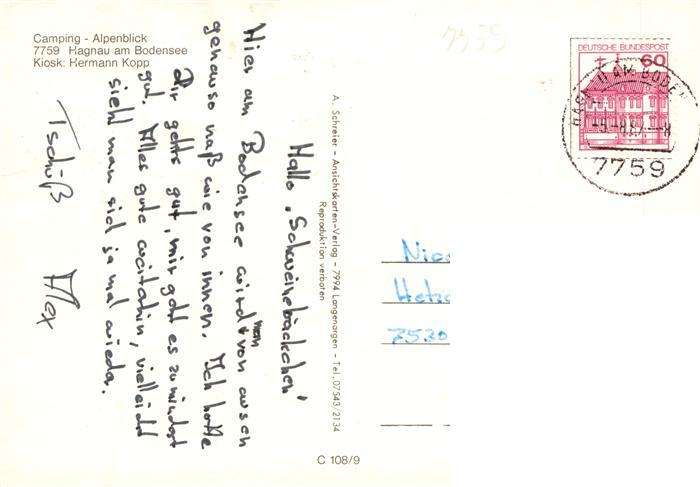 Camping - Alpenblick
7759 Hagnau am Bodensee
Kiosk: Hermann Kopp
Hallo, Schweinebäckchen'
Hier am Bodensee wird man von aussen
genauso naß wie von innen. Ich hoffe
Dir gehts gut, mir geht es zumindest
gut. Alles gute weiterhin, vielleicht
sieht man sich ja mal wieder.
Tschüß Alex
A. Schreier - Ansichtskarten-Verlag - 7994 Langenargen - Tel. 07543/2134
Reproduktion verboten
C 108/9
DEUTSCHE BUNDESPOST
60
HAGNAU AM BODEN
7759
7530